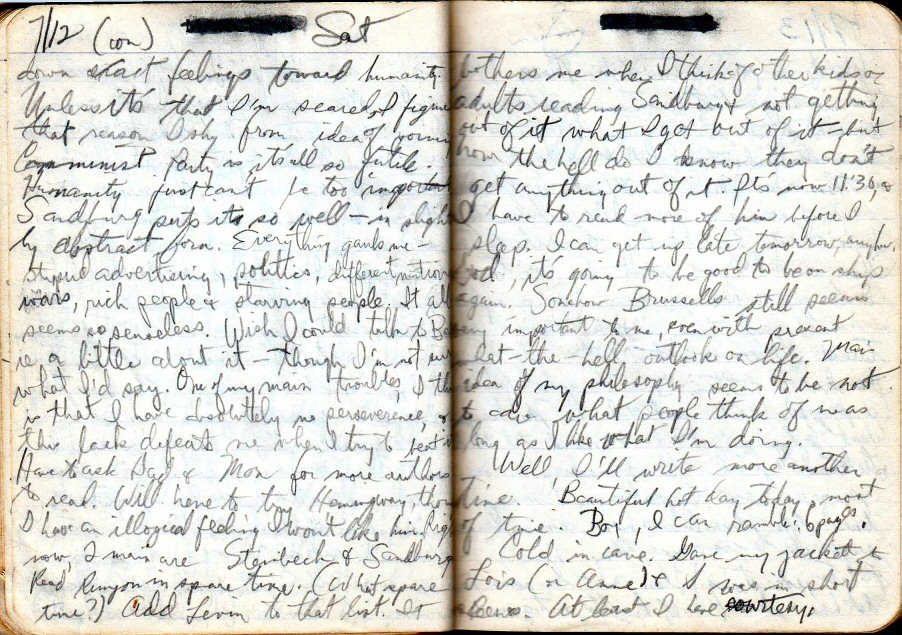 7/12 (con) Sat
down exact feelings toward humanity.
Unless it's that I'm scared. I figure
that reason I shy from idea of
Communist Party is it's all so futile.
Humanity just can't be too important
Sandburg puts it so well – in slight
ly abstract form. Everything me –
stupid advertising, politics, different nations
wars, rich people & starving people. It all
seems so senseless. Wish I could talk to
ie a little about it – though I'm not sure
what I'd say. One of my main troubles, I think
is that I have absolutely no perseverence,
this lack defeats me when I try to
Have to ask Dad & Mom for more authors
to read. Will have to try Hemingway, though
I have an illogical feeling I won't like him. Right
now, I main are Steinbeck & Sandburg
Read Runyon in spare time. (What spare
time?) Add Levin to that list. It
bothers me when I think of other kids or
adults reading Sandburg & not getting
out of it what I get out of it – but
how the hell do I know they don't
get anything out of it. It's now 11:30, &
I have to read more of him before I
sleep. I can get up late tomorrow, anyhow.
God, it's going to be good to be on ship
again. Somehow Brussells still seems
important to me, even with present
-the-hell outlook on life. Main
idea of my philosophy seems to be not
to care what people think of me as
long as I like what I'm doing.
Well I'll write more another
time. Beautiful hot day today, most
of time. Boy, I can ramble: 6 pages.
Cold in cave. Gave my jacket to
Lois (or Anne) & I was in short
sleeves. At least I have courtesy.